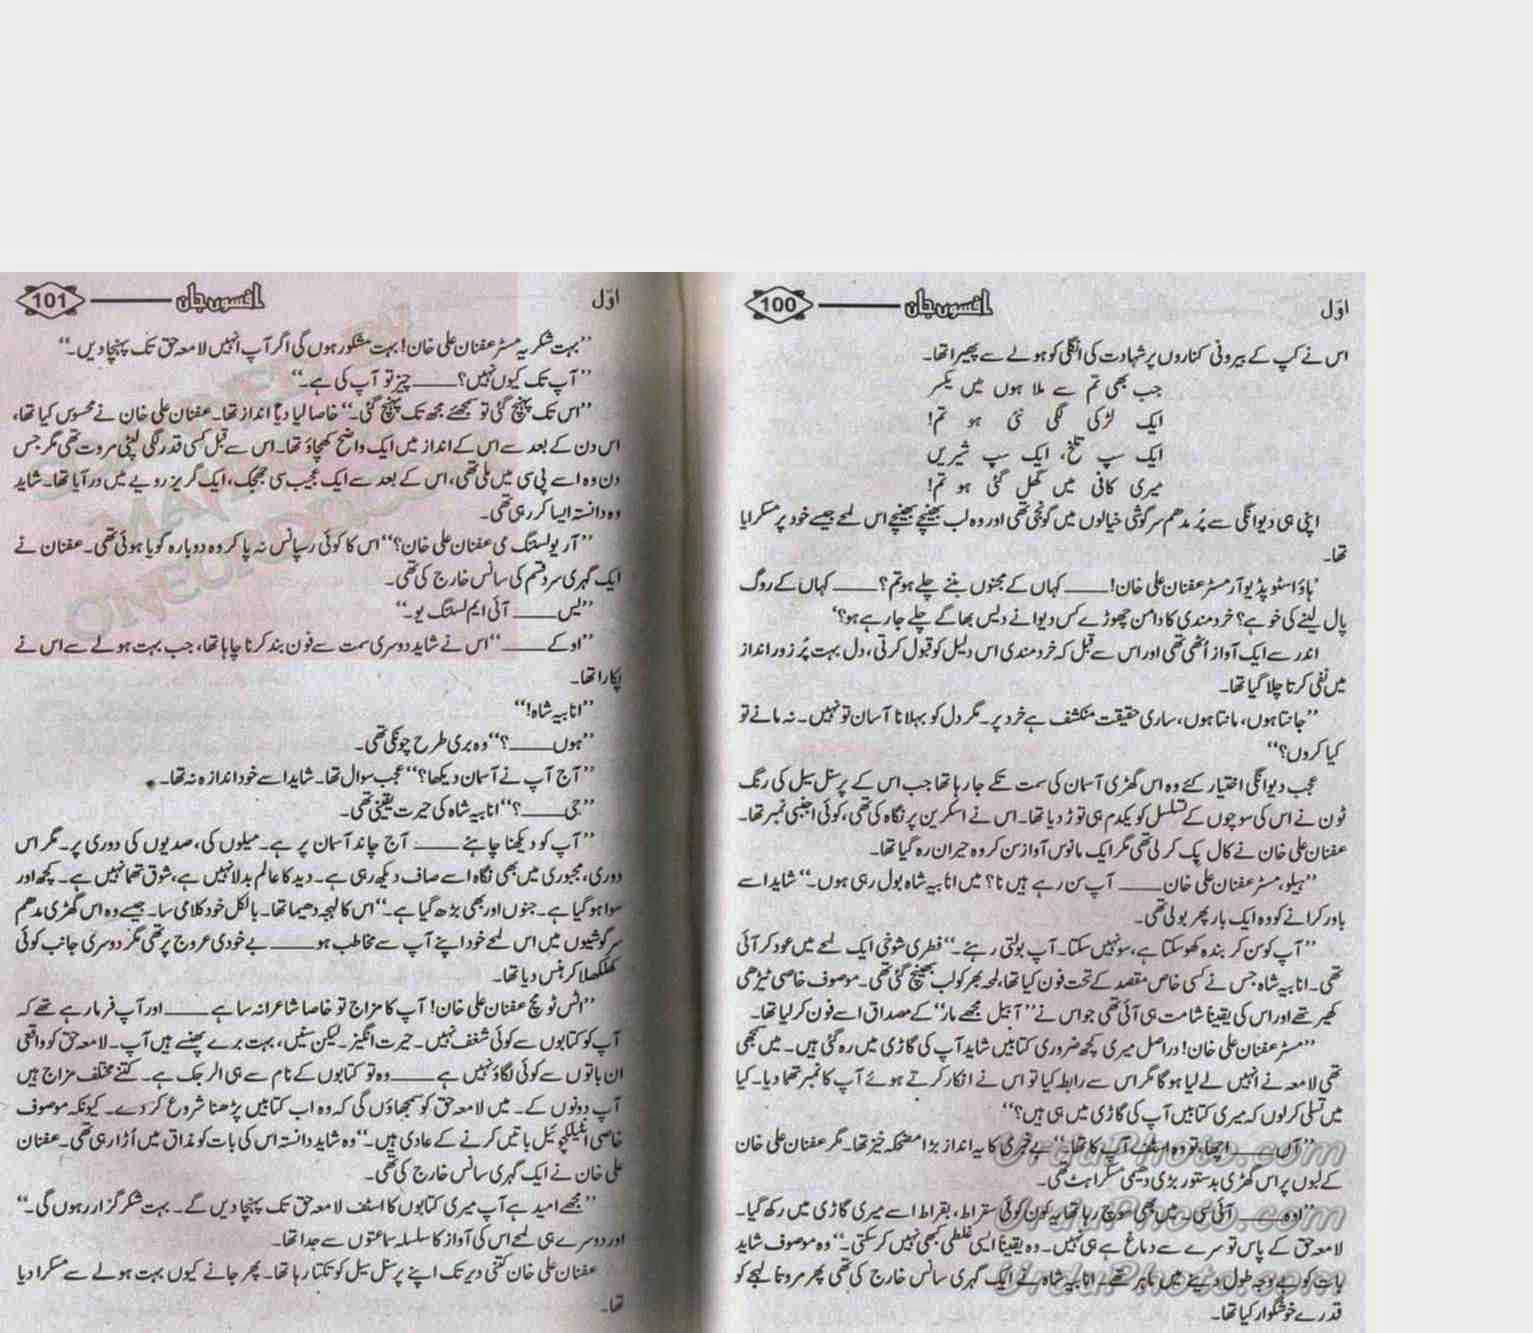 اوّل افسوں جان 100
اس نے کپ کے بیرونی کناروں پر شہادت کی انگلی کو ہولے سے پھیرا تھا۔
جب بھی تم سے ملا ہوں میں یکسر
ایک لڑکی لگی نئی ہو تم!
ایک سپ تلخ، ایک سپ شیریں
میری کافی میں گھل گئی ہو تم!
اپنی ہی دیوانگی سے پُر مدھم سرگوشی خیالوں میں گونجی تھی اور وہ لب بھینچے بھینچے اس لمحے جیسے خود پر مسکرایا
تھا۔
’ہاؤ اسٹوپڈ یو آر مسٹر عفنان علی خان! ____ کہاں کے مجنوں بننے چلے ہو تم؟ ____ کہاں کے روگ
پال لینے کی خو ہے؟ خردمندی کا دامن چھوڑے کس دیوانے دیس بھاگے چلے جا رہے ہو؟‘
اندر سے ایک آواز اُٹھی تھی اور اس سے قبل کہ خردمندی اس دلیل کو قبول کرتی، دل بہت پُر زور انداز
میں نفی کرتا چلا گیا تھا۔
’’جانتا ہوں، مانتا ہوں، ساری حقیقت منکشف ہے خرد پر۔ مگر دل کو بہلانا آسان تو نہیں۔ نہ مانے تو
کیا کروں؟‘‘
عجب دیوانگی اختیار کئے وہ اس گھڑی آسمان کی سمت تکے جا رہا تھا جب اس کے پرسنل سیل کی رنگ
ٹون نے اس کی سوچوں کے تسلسل کو یکدم ہی توڑ دیا تھا۔ اس نے اسکرین پر نگاہ کی تھی، کوئی اجنبی نمبر تھا۔
عفنان علی خان نے کال پک کر لی تھی مگر ایک مانوس آواز سن کر وہ حیران رہ گیا تھا۔
’’ہیلو، مسٹر عفنان علی خان ____ آپ سن رہے ہیں نا؟ میں انابیہ شاہ بول رہی ہوں۔‘‘ شاید اسے
باور کرانے کو وہ ایک بار پھر بولی تھی۔
’’آپ کو سن کر بندہ کھو سکتا ہے، سو نہیں سکتا۔ آپ بولتی رہئے۔‘‘ فطری شوخی ایک لمحے میں عود کر آئی
تھی۔ انابیہ شاہ جس نے کسی خاص مقصد کے تحت فون کیا تھا، لمحہ بھر کو لب بھینچ گئی تھی۔ موصوف خاصی ٹیڑھی
کھیر تھے اور اس کی یقیناً شامت ہی آئی تھی جو اس نے ’’آ بیل مجھے مار‘‘ کے مصداق اسے فون کر لیا تھا۔
’’مسٹر عفنان علی خان! دراصل میری کچھ ضروری کتابیں شاید آپ کی گاڑی میں رہ گئی ہیں۔ میں سمجھی
تھی لامعہ نے انہیں لے لیا ہو گا مگر اس سے رابطہ کیا تو اس نے انکار کرتے ہوئے آپ کا نمبر تھما دیا۔ کیا
میں تسلی کر لوں کہ میری کتابیں آپ کی گاڑی میں ہی ہیں؟‘‘
’’آں ____ اچھا، تو وہ اسٹف آپ کا تھا۔‘‘ بے خبری کا یہ انداز بڑا مضحکہ خیز تھا۔ مگر عفنان علی خان
کے لبوں پر اس گھڑی بدستور بڑی دھیمی مسکراہٹ تھی۔
’’اوہ ____ آئی سی۔ میں بھی سوچ رہا تھا یہ کون کوئی سقراط، بقراط اسے میری گاڑی میں رکھ گیا۔
لامعہ حق کے پاس تو سرے سے دماغ ہے ہی نہیں۔ وہ یقیناً ایسی غلطی کبھی نہیں کر سکتی۔‘‘ وہ موصوف شاید
بات کو بے وجہ طول دینے میں ماہر تھے۔ انابیہ شاہ نے ایک گہری سانس خارج کی تھی پھر مروتاً لہجے کو
قدرے خوشگوار کیا تھا۔
UrduPhoto.com
UrduPhoto.com
UrduPhoto.com
اوّل افسوں جان 101
’’بہت شکریہ مسٹر عفنان علی خان! بہت مشکور ہوں گی اگر آپ انہیں لامعہ حق تک پہنچا دیں۔‘‘
’’آپ تک کیوں نہیں؟ ____ چیز تو آپ کی ہے۔‘‘
’’اس تک پہنچ گئی تو سمجھئے مجھ تک پہنچ گئی۔‘‘ خاصا لیا دیا انداز تھا۔ عفنان علی خان نے محسوس کیا تھا،
اس دن کے بعد سے اس کے انداز میں ایک واضح کھچاؤ تھا۔ اس سے قبل کسی قدر لگی لپٹی مروت تھی مگر جس
دن وہ اسے پی سی میں ملی تھی، اس کے بعد سے ایک عجیب سی جھجک، ایک گریز رویے میں در آیا تھا۔ شاید
وہ دانستہ ایسا کر رہی تھی۔
’’آر یو لسننگ می عفنان علی خان؟‘‘ اس کا کوئی رسپانس نہ پا کر وہ دوبارہ گویا ہوئی تھی۔ عفنان نے
ایک گہری سرد قسم کی سانس خارج کی تھی۔
’’یس ____ آئی ایم لسننگ یو۔‘‘
’’اوکے ____‘‘ اس نے شاید دوسری سمت سے فون بند کرنا چاہا تھا، جب بہت ہولے سے اس نے
پکارا تھا۔
’’انابیہ شاہ!‘‘
’’ہوں ____؟‘‘ وہ بری طرح چونکی تھی۔
’’آج آپ نے آسمان دیکھا؟‘‘ عجب سوال تھا۔ شاید اسے خود اندازہ نہ تھا۔
’’جی ____؟‘‘ انابیہ شاہ کی حیرت یقینی تھی۔
’’آپ کو دیکھنا چاہئے ____ آج چاند آسمان پر ہے۔ میلوں کی، صدیوں کی دوری پر۔ مگر اس
دوری، مجبوری میں بھی نگاہ اسے صاف دیکھ رہی ہے۔ دید کا عالم بدلا نہیں ہے، شوق تھما نہیں ہے۔ کچھ اور
سوا ہو گیا ہے۔ جنوں اور بھی بڑھ گیا ہے۔‘‘ اس کا لہجہ دھیما تھا۔ بالکل خودکلامی سا۔ جیسے وہ اس گھڑی مدھم
سرگوشیوں میں اس لمحے خود اپنے آپ سے مخاطب ہو ____ بے خودی عروج پر تھی مگر دوسری جانب کوئی
کھلکھلا کر ہنس دیا تھا۔
’’اٹس ٹو مچ عفنان علی خان! آپ کا مزاج تو خاصا شاعرانہ سا ہے ____ اور آپ فرما رہے تھے کہ
آپ کو کتابوں سے کوئی شغف نہیں۔ حیرت انگیز۔ لیکن سنیں، بہت برے پھنسے ہیں آپ۔ لامعہ حق کو واقعی
ان باتوں سے کوئی لگاؤ نہیں ہے ____ وہ تو کتابوں کے نام سے ہی الرجک ہے۔ کتنے مختلف مزاج ہیں
آپ دونوں کے۔ میں لامعہ حق کو سمجھاؤں گی کہ وہ اب کتابیں پڑھنا شروع کر دے۔ کیونکہ موصوف
خاصی انٹلیکچوئیل باتیں کرنے کے عادی ہیں۔‘‘ وہ شاید دانستہ اس کی بات کو مذاق میں اُڑا رہی تھی۔ عفنان
علی خان نے ایک گہری سانس خارج کی تھی۔
’’مجھے امید ہے آپ میری کتابوں کا اسٹف لامعہ حق تک پہنچا دیں گے۔ بہت شکر گزار رہوں گی۔‘‘
اور دوسرے ہی لمحے اس کی آواز کا سلسلہ سماعتوں سے جدا تھا۔
عفنان علی خان کتنی دیر تک اپنے پرسنل سیل کو تکتا رہا تھا۔ پھر جانے کیوں بہت ہولے سے مسکرا دیا
تھا۔